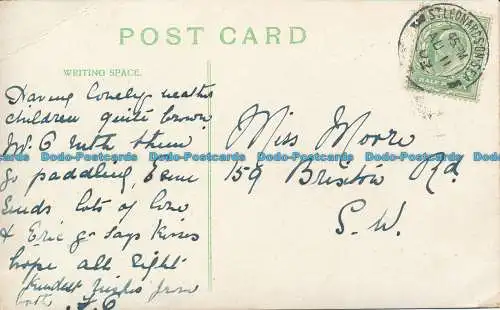 POST CARD
WRITING SPACE.
ST LEONARDS-ON-SEA
Having lovely weather
children quite brown
Mr G with them
go paddling,
sends lots of love
& Eric says Kisses
hope all right
Kindest wishes from
both
Miss Moore
159 Brixton Rd
S.W.
Dodo-Postcards Dodo-Postcards Dodo-Postcards Dodo-Postcards Dodo-Postcards